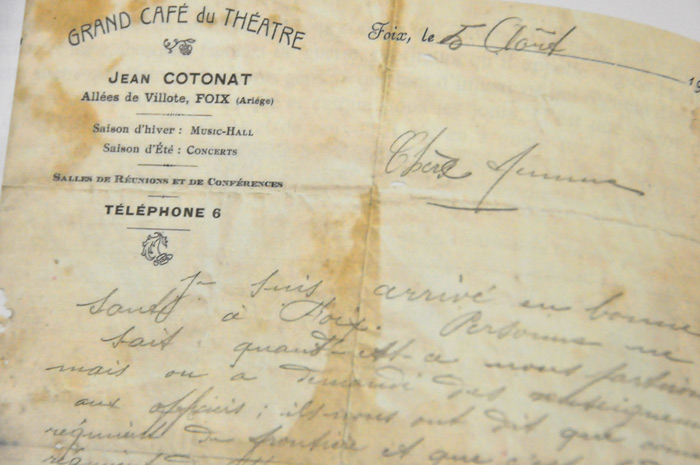 GRAND CAFÉ du THÉATRE
JEAN COTONAT
Allées de Villote, FOIX (Ariége)
Saison d'hiver : MUSIC-HALL
Saison d'Été : CONCERTS
SALLES DE RÉUNIONS ET DE CONFÉRENCES
TÉLÉPHONE 6
Foix, le 5 Août 19
Chère femme
Je suis arrivé en bonne
santé à Foix. Personne ne
sait quand est-ce nous partirons
mais on a demandé des renseignem
aux officiers ; ils nous ont dit que
régiment de frontière et que
régiment